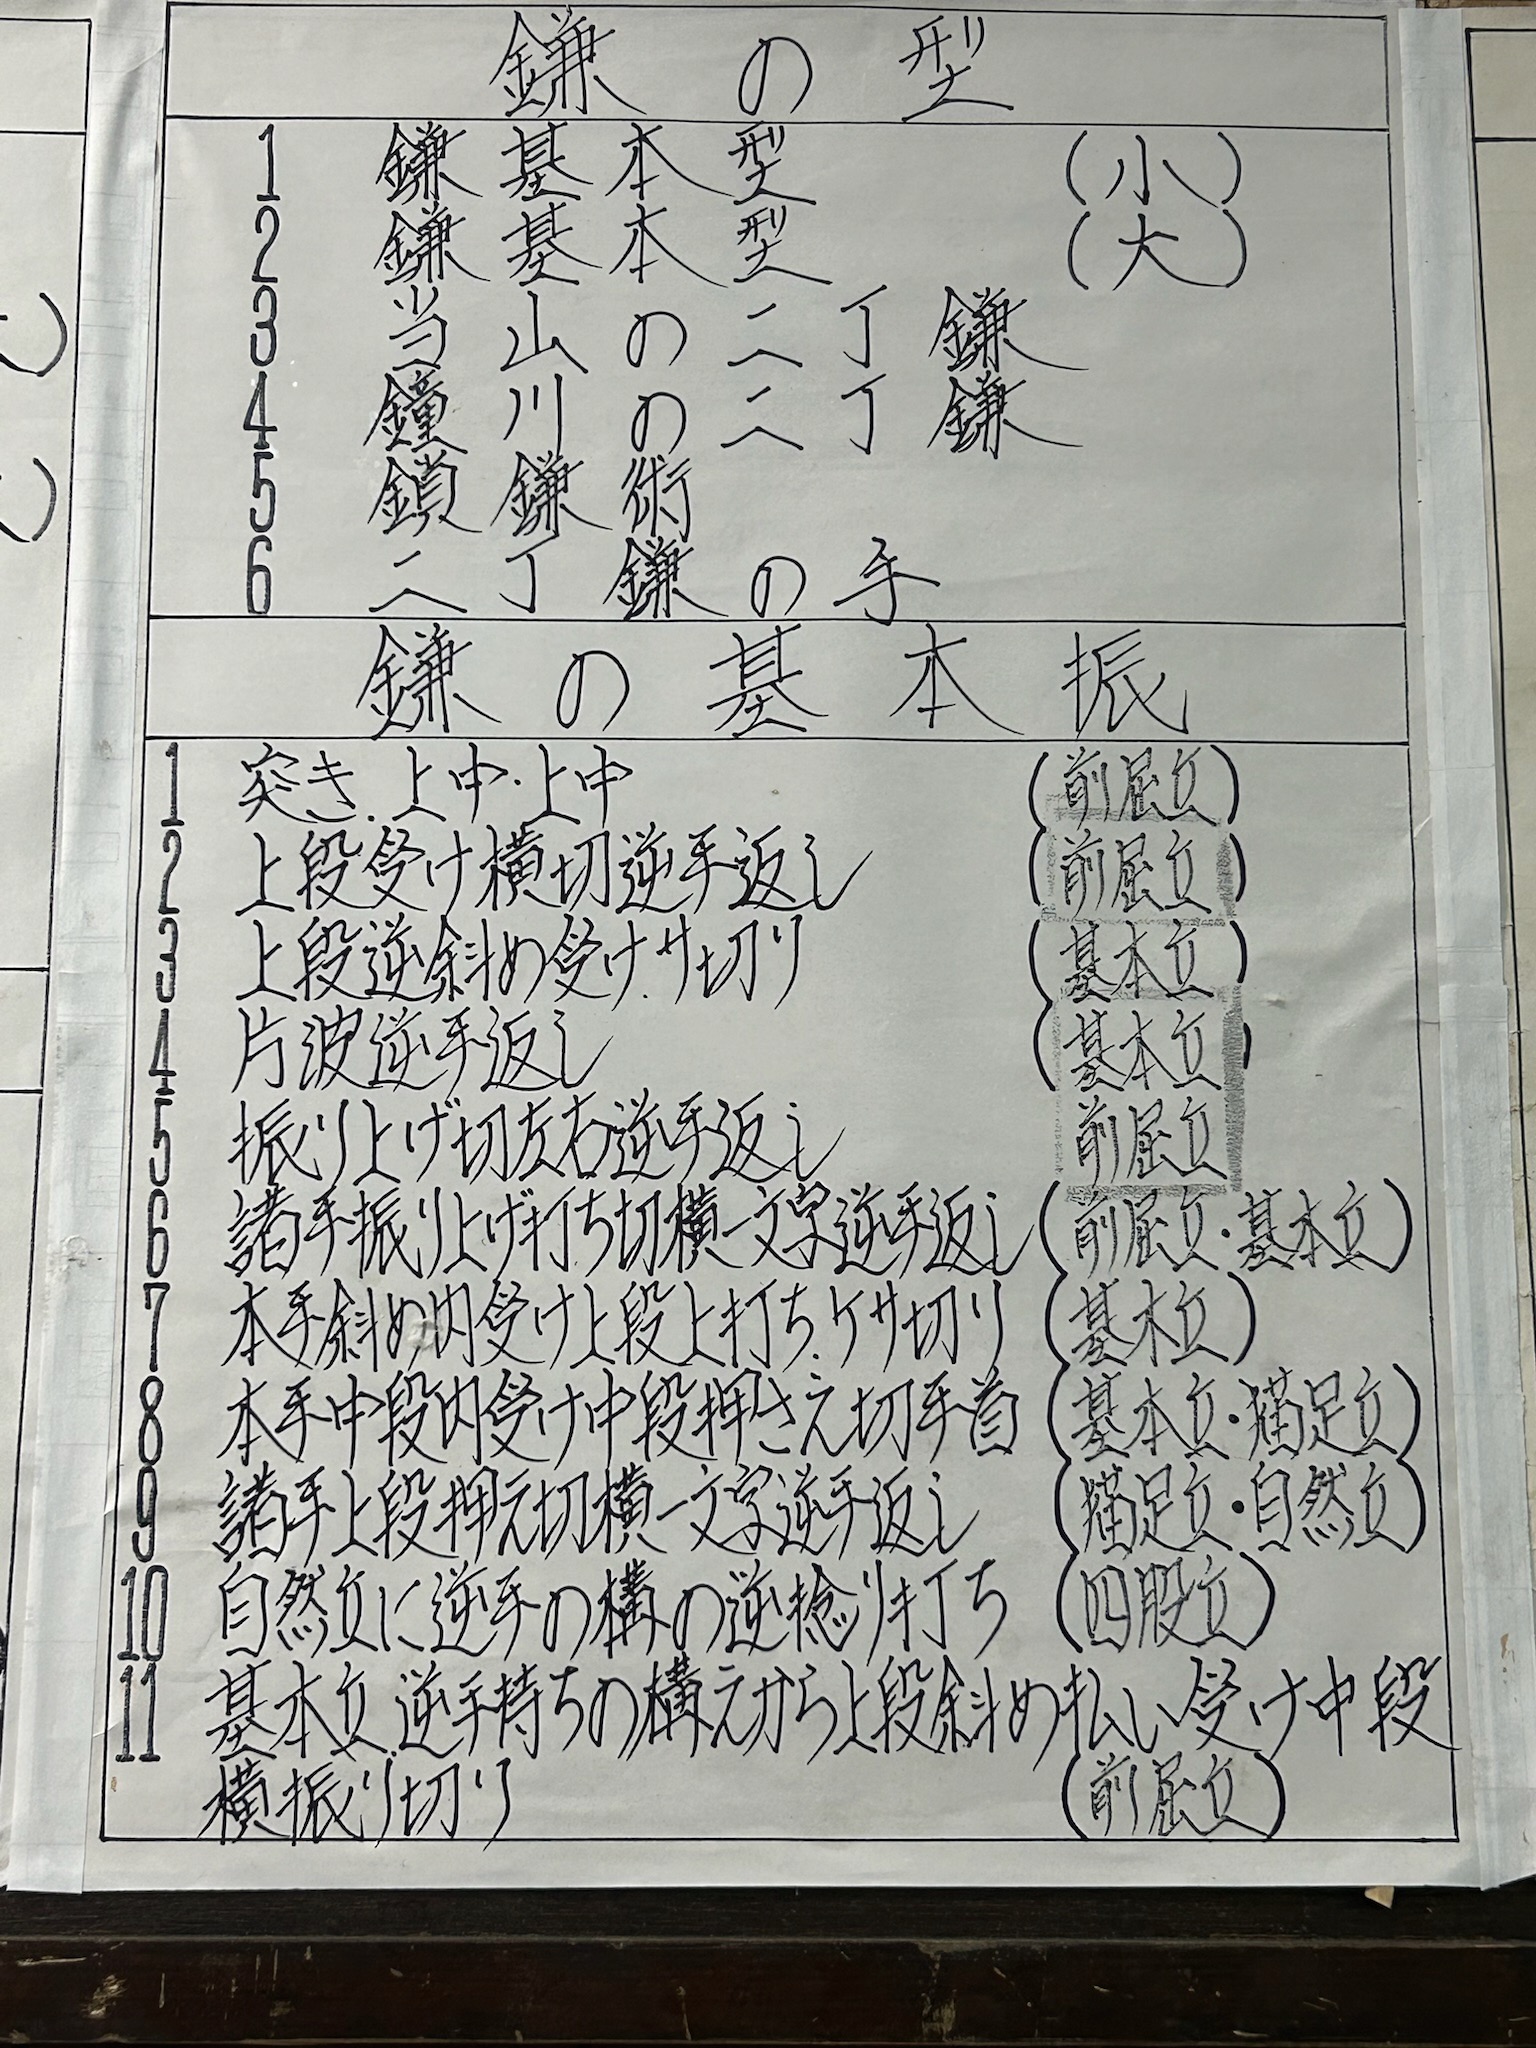 鎌の型
1 鎌基本型 (小)
2 鎌基本型 (大)
3 当山の二丁鎌
4 鐘川の二丁鎌
5 鎖鎌術
6 二丁鎌の手
鎌の基本振
1 突き.上中・上中 (前屈立)
2 上段受け横切逆手返し (前屈立)
3 上段逆斜め受け.サ切り (基本立)
4 片波逆手返し (基本立)
5 振り上げ切左右逆手返し 前屈立
6 諸手振り上げ打ち切横一文字逆手返し (前屈立・基本立)
7 本手斜め内受け上段上打ち.ケサ切り (基本立)
8 本手中段内受け中段押さえ切手首 (基本立・猫足立)
9 諸手上段押え切横一文字逆手返し (猫足立・自然立)
10 自然立に逆手の構の逆捻り打ち (四股立)
11 基本立.逆手持ちの構えから上段斜め払い受け中段
横振り切り (前屈立)